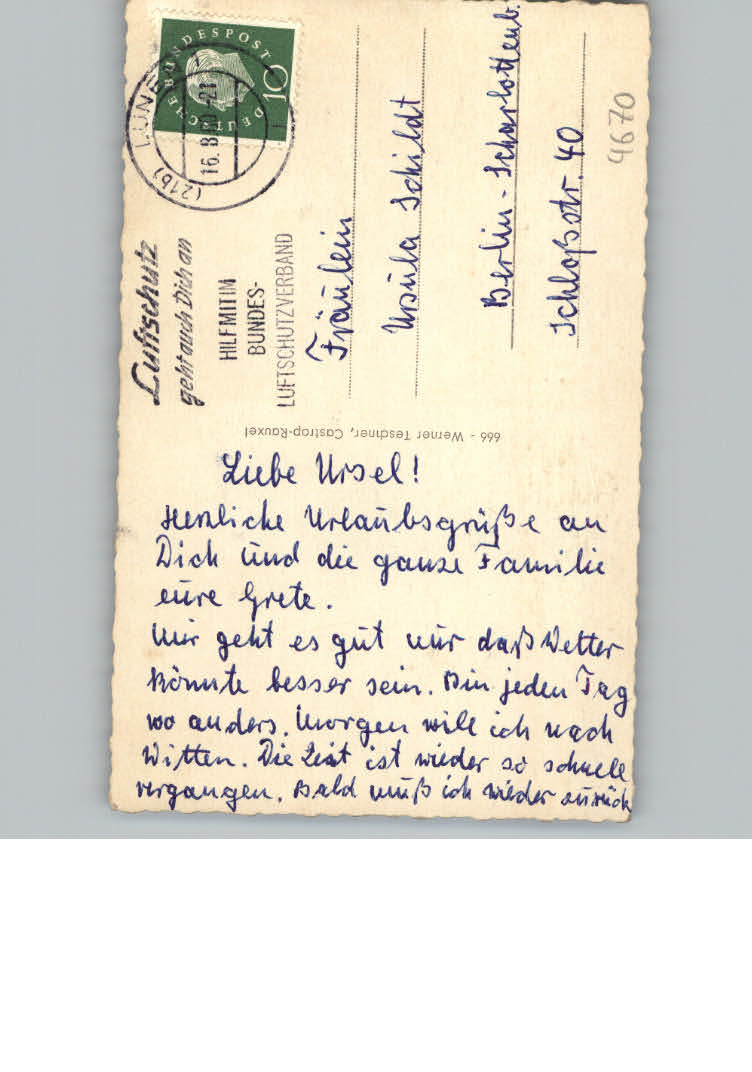 DEUTSCHE BUNDESPOST
10
(21b) LÜN
16.8.60-21
Luftschutz
geht auch Dich an
HILF MIT IM
BUNDES-
LUFTSCHUTZVERBAND
Fräulein
Ursula Schildt
Berlin-Scharlottenb.
Schloßstr. 40
4670
666 - Werner Teschner, Castrop-Rauxel
Liebe Ursel!
Herzliche Urlaubsgrüße an
Dich und die ganze Familie
eure Grete.
Mir geht es gut nur daß Wetter
könnte besser sein. Bin jeden Tag
wo anders. Morgen will ich nach
Witten. Die Zeit ist wieder so schnell
vergangen. Bald muß ich wieder zurück